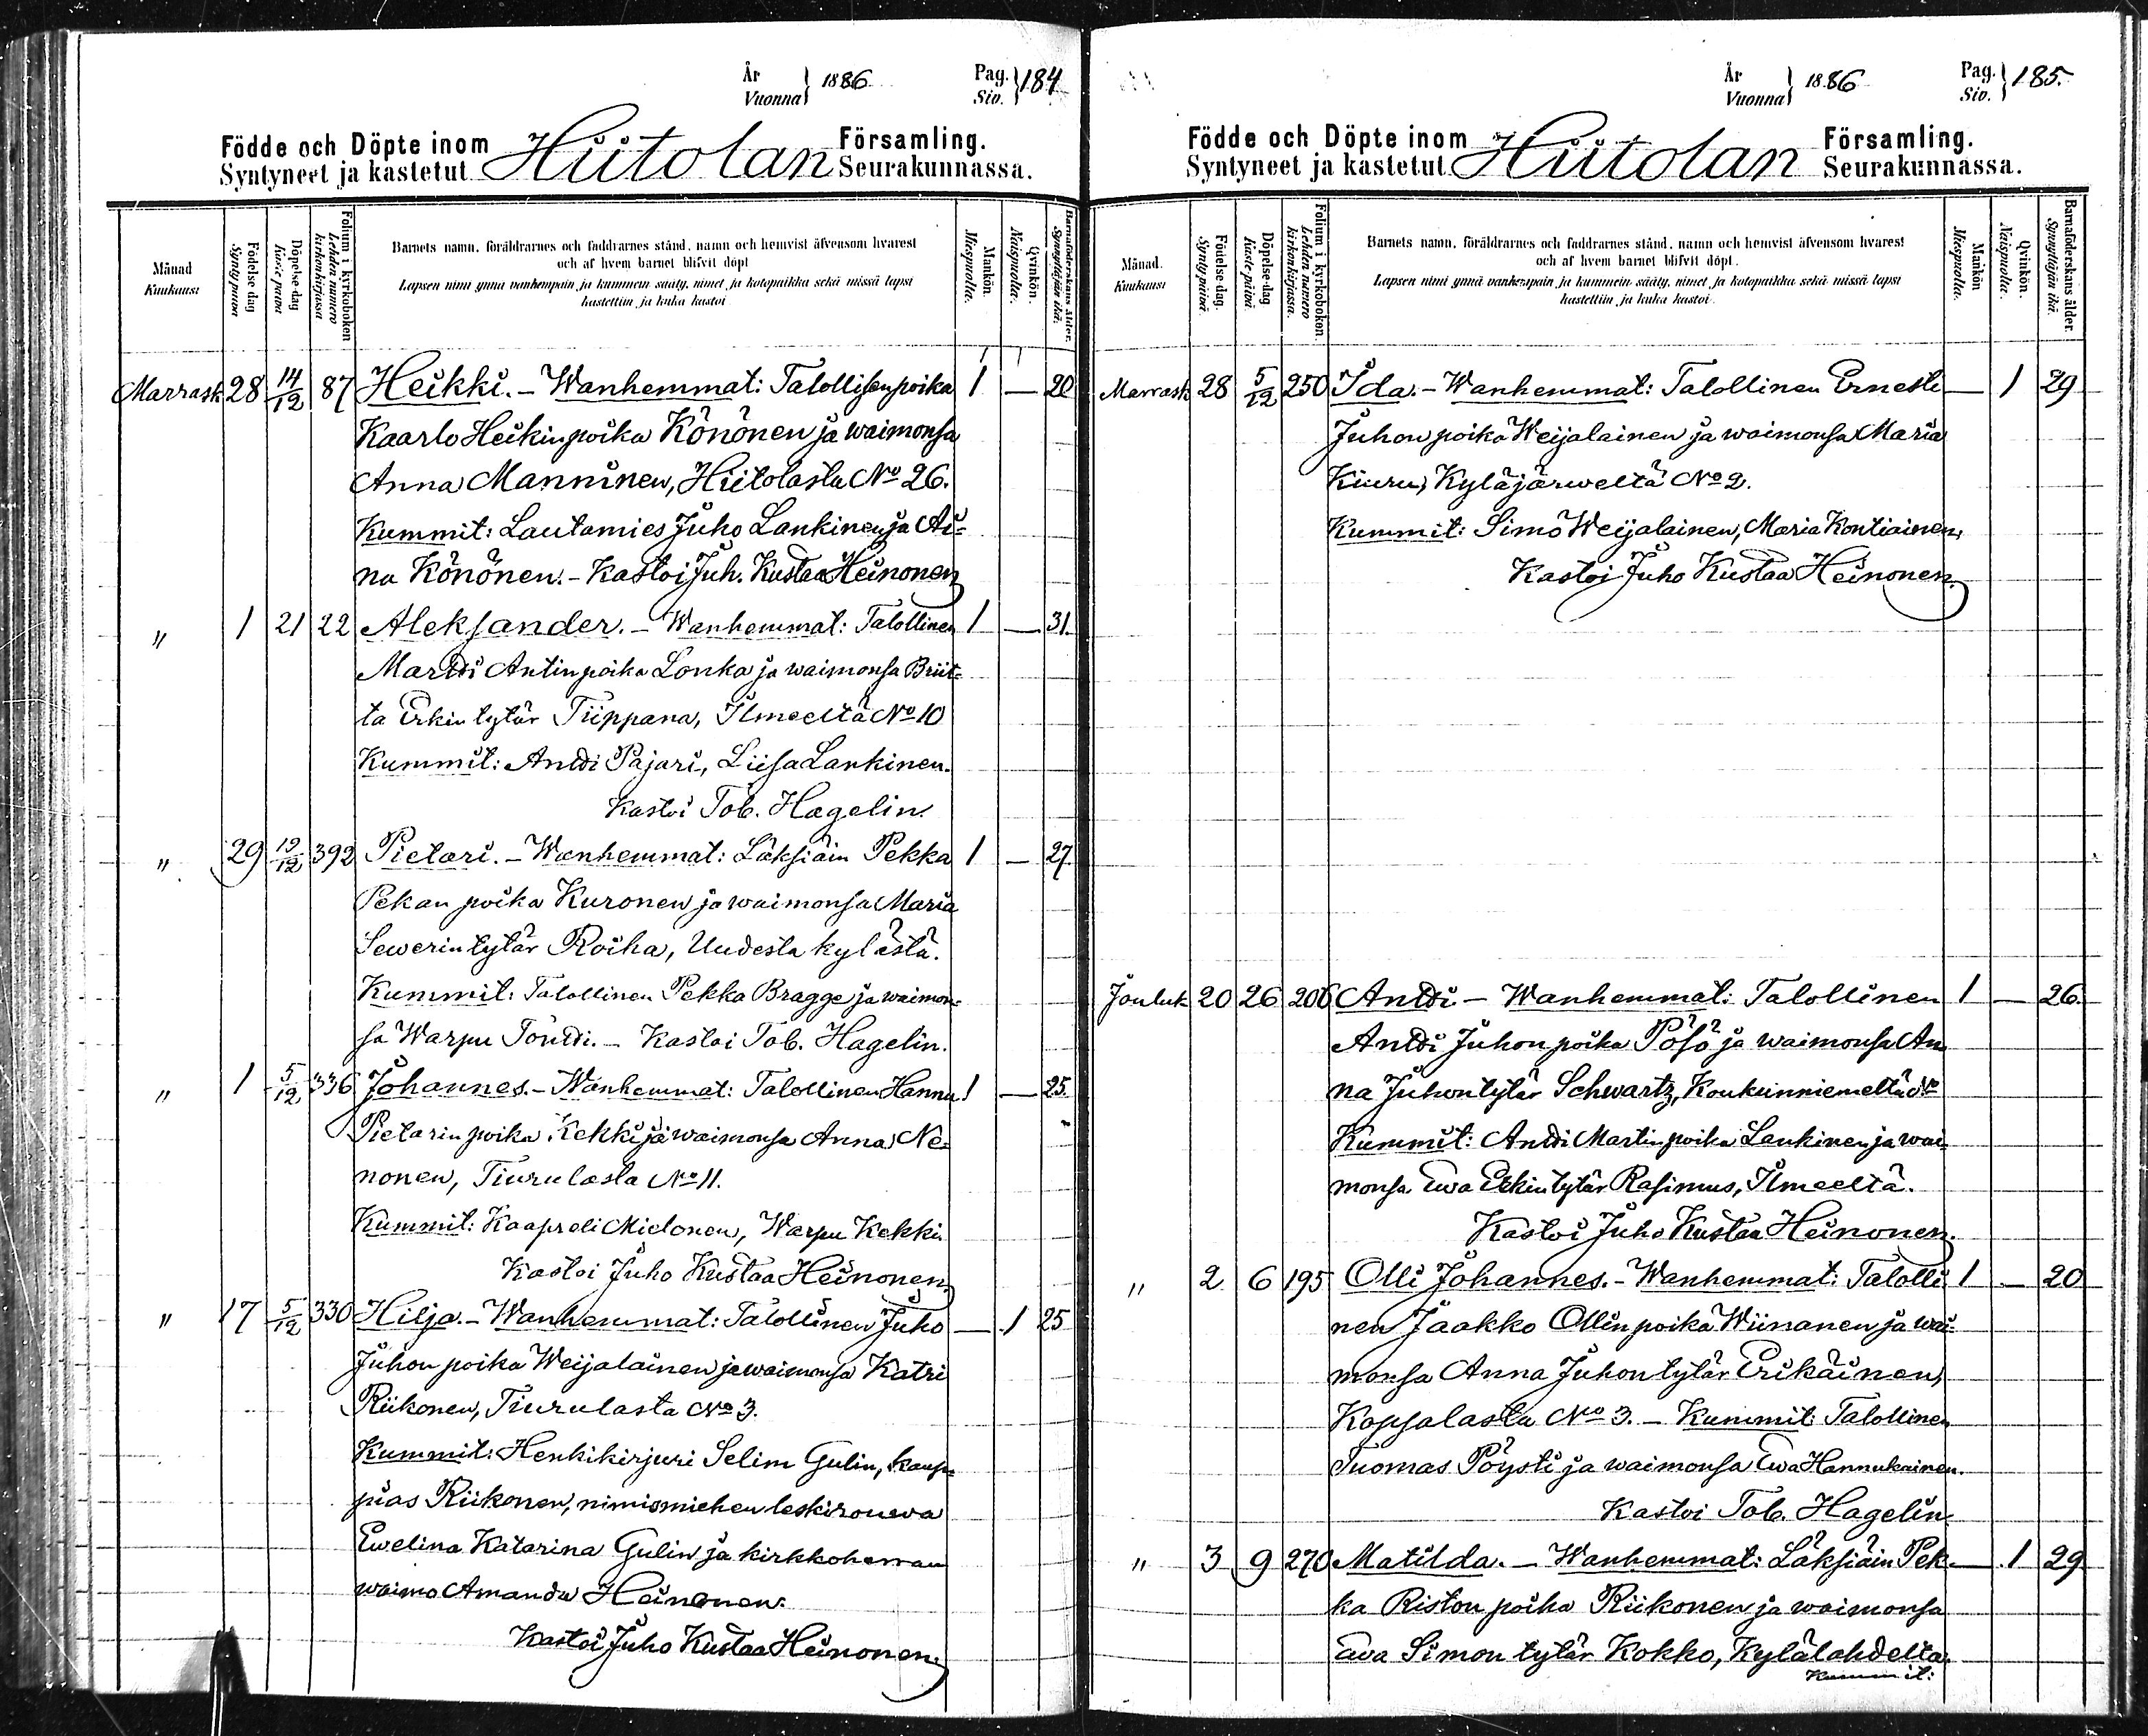 År
Vuonna } 1886
Pag.
Siv. } 184
Födde och Döpte inom Hiitolan Församling.
Syntyneet ja kastetut Seurakunnassa.
Månad
Kuukausi
Födelse dag
Syntypäivä
Döpelse-dag
Kaste-päivä
Folium i kyrkoboken
Lehden numero kirkonkirjassa
Barnets namn, föräldrarnes och faddrarnes stånd, namn och hemvist äfvensom hvarest
och af hvem barnet blifvit döpt
Lapsen nimi ynnä vanhempain ja kummein sääty, nimet ja kotopaikka sekä missä lapsi
kastettiin ja kuka kastoi
Mankön.
Miespuolta.
Qvinkön.
Naispuolta.
Barnaföderskans ålder.
Synnyttäjän ikä.
Marrask 28 14/12 87 Heikki. – Wanhemmat: Talollisenpoika 1 — 20
Kaarlo Heikinpoika Könönen ja waimonsa
Anna Manninen, Hiitolasta No 26.
Kummit: Lautamies Juho Lankinen ja Ai=
na Könönen. – Kastoi Juh. Kustaa Heinonen
" 1 21 22 Aleksander. – Wanhemmat: Talollinen 1 — 31.
Martti Antinpoika Lonka ja waimonsa Briit=
ta Erkintytär Tiippana, Ilmeeltä No 10
Kummit: Antti Pajari, Liisa Lankinen.
Kastoi Tob. Hagelin.
" 29 12/12 392 Pietari. – Wanhemmat: Läksiäin Pekka 1 — 27.
Pekan poika Kuronen ja waimonsa Maria
Sewerintytär Roiha, Uudesta kylästä.
Kummit: Talollinen Pekka Bragge ja waimon=
sa Warpu Tontti. – Kastoi Tob. Hagelin.
" 1 5/12 336 Johannes. – Wanhemmat: Talollinen Hannu 1 — 25.
Pietarin poika Kekki ja waimonsa Anna Ne=
nonen, Tiurulasta No 11.
Kummit: Kaapreli Mielonen, Warpu Kekki.
Kastoi Juho Kustaa Heinonen
" 17 5/12 330 Hilja. – Wanhemmat: Talollinen Juho — 1 25
Juhon poika Weijalainen ja waimonsa Katri
Riikonen, Tiurulasta No 3.
Kummit: Henkikirjuri Selim Gulin, kaup=
pias Riikonen, nimismiehen leskirouwa
Ewelina Katarina Gulin ja kirkkoherran
waimo Amanda Heinonen.
Kastoi Juho Kustaa Heinonen.
År
Vuonna } 1886
Pag.
Siv. } 185.
Födde och Döpte inom Hiitolan Församling.
Syntyneet ja kastetut Seurakunnassa.
Månad.
Kuukausi
Födelse-dag.
Syntypäivä.
Döpelse-dag
Kaste-päivä.
Folium i kyrkoboken.
Lehden numero kirkonkirjassa.
Barnets namn, föräldrarnes och faddrarnes stånd, namn och hemvist äfvensom hvarest
och af hvem barnet blifvit döpt.
Lapsen nimi ynnä vanhempain ja kummein sääty, nimet ja kotopaikka sekä missä lapsi
kastettiin ja kuka kastoi.
Mankön
Miespuolta.
Qvinkön.
Naispuolta.
Barnaföderskans ålder.
Synnyttäjän ikä.
Marrask 28 5/12 250 Ida. – Wanhemmat: Talollinen Ernesti — 1 29
Juhon poika Weijalainen ja waimonsa Maria
Kiuru, Kyläjärweltä No 2.
Kummit: Simo Weijalainen, Maria Kontiainen,
Kastoi Juho Kustaa Heinonen.
Jouluk 20 26 206 Antti – Wanhemmat: Talollinen 1 — 26.
Antti Juhon poika Pösö ja waimonsa An
na Juhontytär Schwartz, Koukunniemeltä No
Kummit: Antti Martinpoika Lankinen ja wai=
monsa Ewa Erkintytär Rasimus, Ilmeeltä.
Kastoi Juho Kustaa Heinonen.
" 2 6 195 Olli Johannes. – Wanhemmat: Talolli 1 — 20
nen Jaakko Ollinpoika Wiinanen ja wai=
monsa Anna Juhontytär Erikäinen,
Kopsalasta No 3. – Kummit: Talollinen
Tuomas Pöysti ja waimonsa Ewa Hannukainen.
Kastoi Tob. Hagelin
" 3 9 270 Matilda. – Wanhemmat: Läksiäin Pek — 1 29
ka Riston poika Riikonen ja waimonsa
Ewa Simon tytär Kokko, Kylälahdelta.
Kummit: